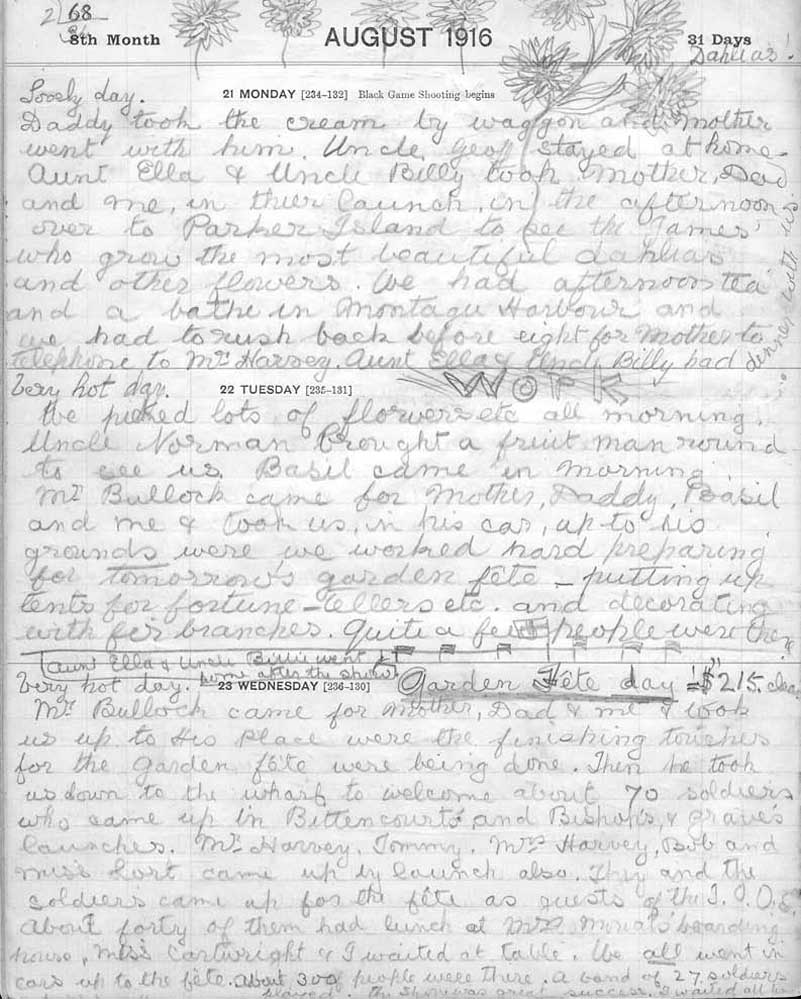 2 68
8th Month AUGUST 1916 31 Days
Dahlias!
Lovely day. 21 MONDAY [234-132] Black Game Shooting begins
Daddy took the cream by waggon and Mother
went with him. Uncle Geoff stayed at home.
Aunt Ella & Uncle Billy took Mother, Dad
and me, in thier launch, in the afternoon
over to Parker Island to see the James'
who grow the most beautiful dahlias
and other flowers. We had afternoon tea
and a bathe in Montagu Harbour and
we had to rush back before eight for Mother to
telephone to Mrs Harvey. Aunt Ella & Uncle Billy had
dinner with us
Very hot day. 22 TUESDAY [235-131] WORK
We picked lots of flowers etc all morning.
Uncle Norman brought a fruit man round
to see us. Basil came in morning.
Mr Bullock came for Mother, Daddy, Basil
and me & took us, in his car, up to his
grounds were we worked hard preparing
for tomorrow's garden fête – putting up
tents for fortune-tellers etc. and decorating
with fir branches. Quite a few people were there
Aunt Ella & Uncle Billie went
home after the show
Very hot day. 23 WEDNESDAY [236-130] Garden Fête day $215.
Mr Bullock came for Mother, Dad & me & took
us up to His place were the finishing touches
for the garden fête were being done. Then he took
us down to the wharf to welcome about 70 soldiers
who came up in Bittencourts and Bishop's, & graves
launches. Mr Harvey, Tommy, Mrs Harvey, Bob and
Miss came up by launch also. They and the
soldiers came up for the fête as guests of the I.O.D.E.
About forty of them had lunch at Mrs boarding
house, Miss Cartwright & I waited at table. We all went in
cars up to the fête. About 300 people were there. A band of 27 soldiers
played. The show was great success. I waited all